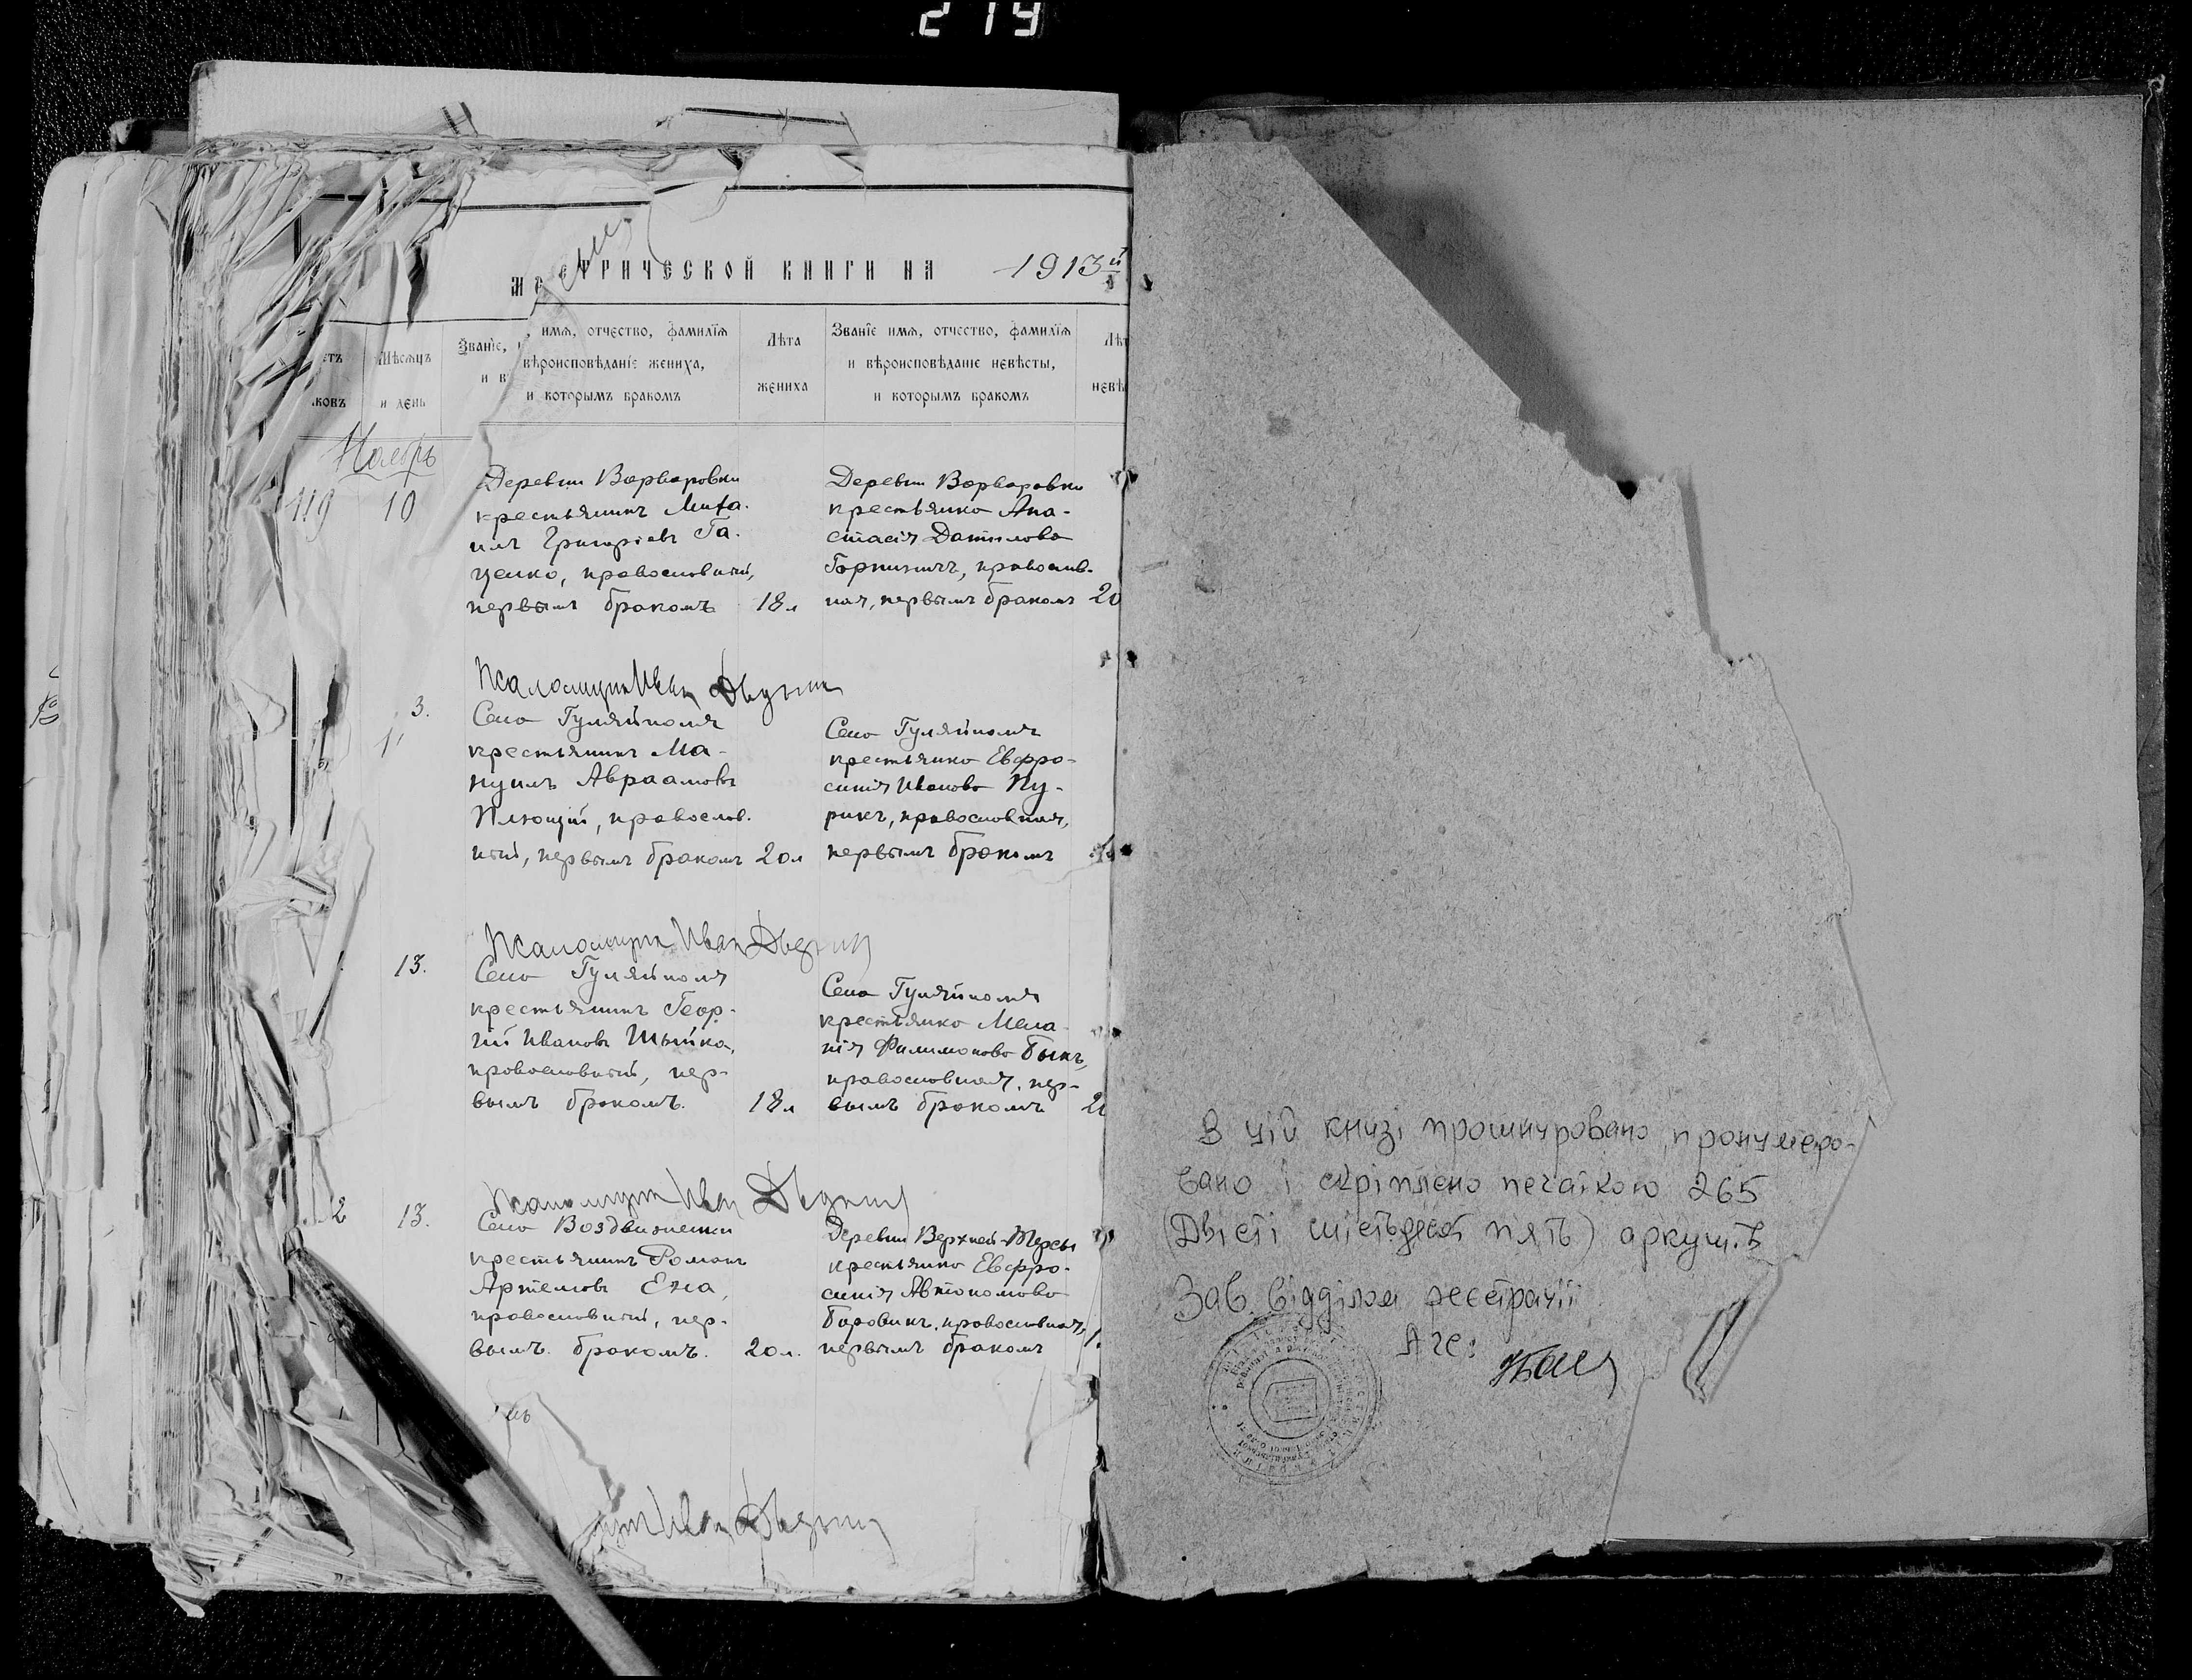 219
МЕТРИЧЕСКОЙ КНИГИ НА 1913й
Мѣсяцъ и день
Званїе, имя, отчество, фамилїя и вѣроисповѣданїе жениха, и которымъ бракомъ
Лѣта жениха
Званїе имя, отчество, фамилїя и вѣроисповѣданїе невѣсты, и которымъ бракомъ
Ноябрь
119
10
Деревни Варваровки
крестьянинъ Миха-
илъ Григоріевъ Га-
ценко, православный,
первымъ бракомъ 18 л
Деревни Варваровки
крестьянка Ана-
стасія Данилова
Горпиничъ, православ-
ная, первымъ бракомъ 20
Иван
3.
Село Гуляйполя
крестьянинъ Ма-
нуилъ Авраамовъ
Плющій, православ-
ный, первымъ бракомъ 20 л
Село Гуляйполя
крестьянка Евфро-
синія Иванова Пу-
рикъ, православная,
первымъ бракомъ
Иван
13.
Село Гуляйполя
крестьянинъ Геор-
гій Ивановъ Шыйка,
православный, пер-
вымъ бракомъ. 18 л
Село Гуляйполя
крестьянка Мела-
нія Филимонова Быкъ,
православная, пер-
вымъ бракомъ 2
Иван
2
13.
Село Воздвиженки
крестьянинъ Романъ
Артемовъ Ена,
православный, пер-
вымъ бракомъ. 20 л.
Деревни Верхней-Терсы
крестьянка Евфро-
синія Автономова
Боровикъ, православная,
первымъ бракомъ
Иван
В цій книзі прошнуровано, пронумеро-
вано і скріплено печаткою 265
(Двісті шістьдесят пять) аркушів
Зав. відділом реєстрації
АГС: